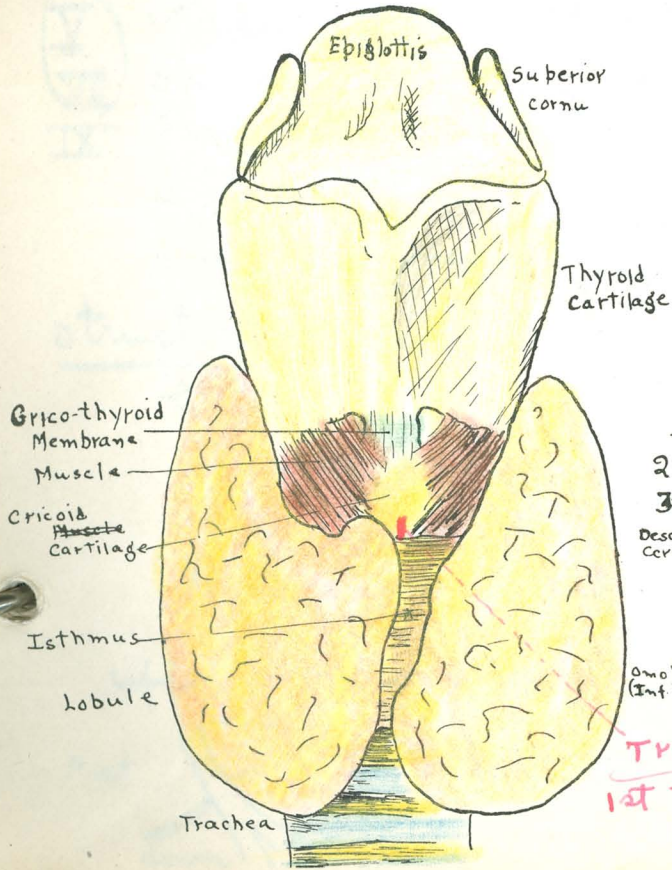 Epiglottis
Superior
cornu
Thyroid
Cartilage
Crico-thyroid
Membrane
Muscle
Cricoid
Muscle
Cartilage
Isthmus
Lobule
Trachea
2
3
1st